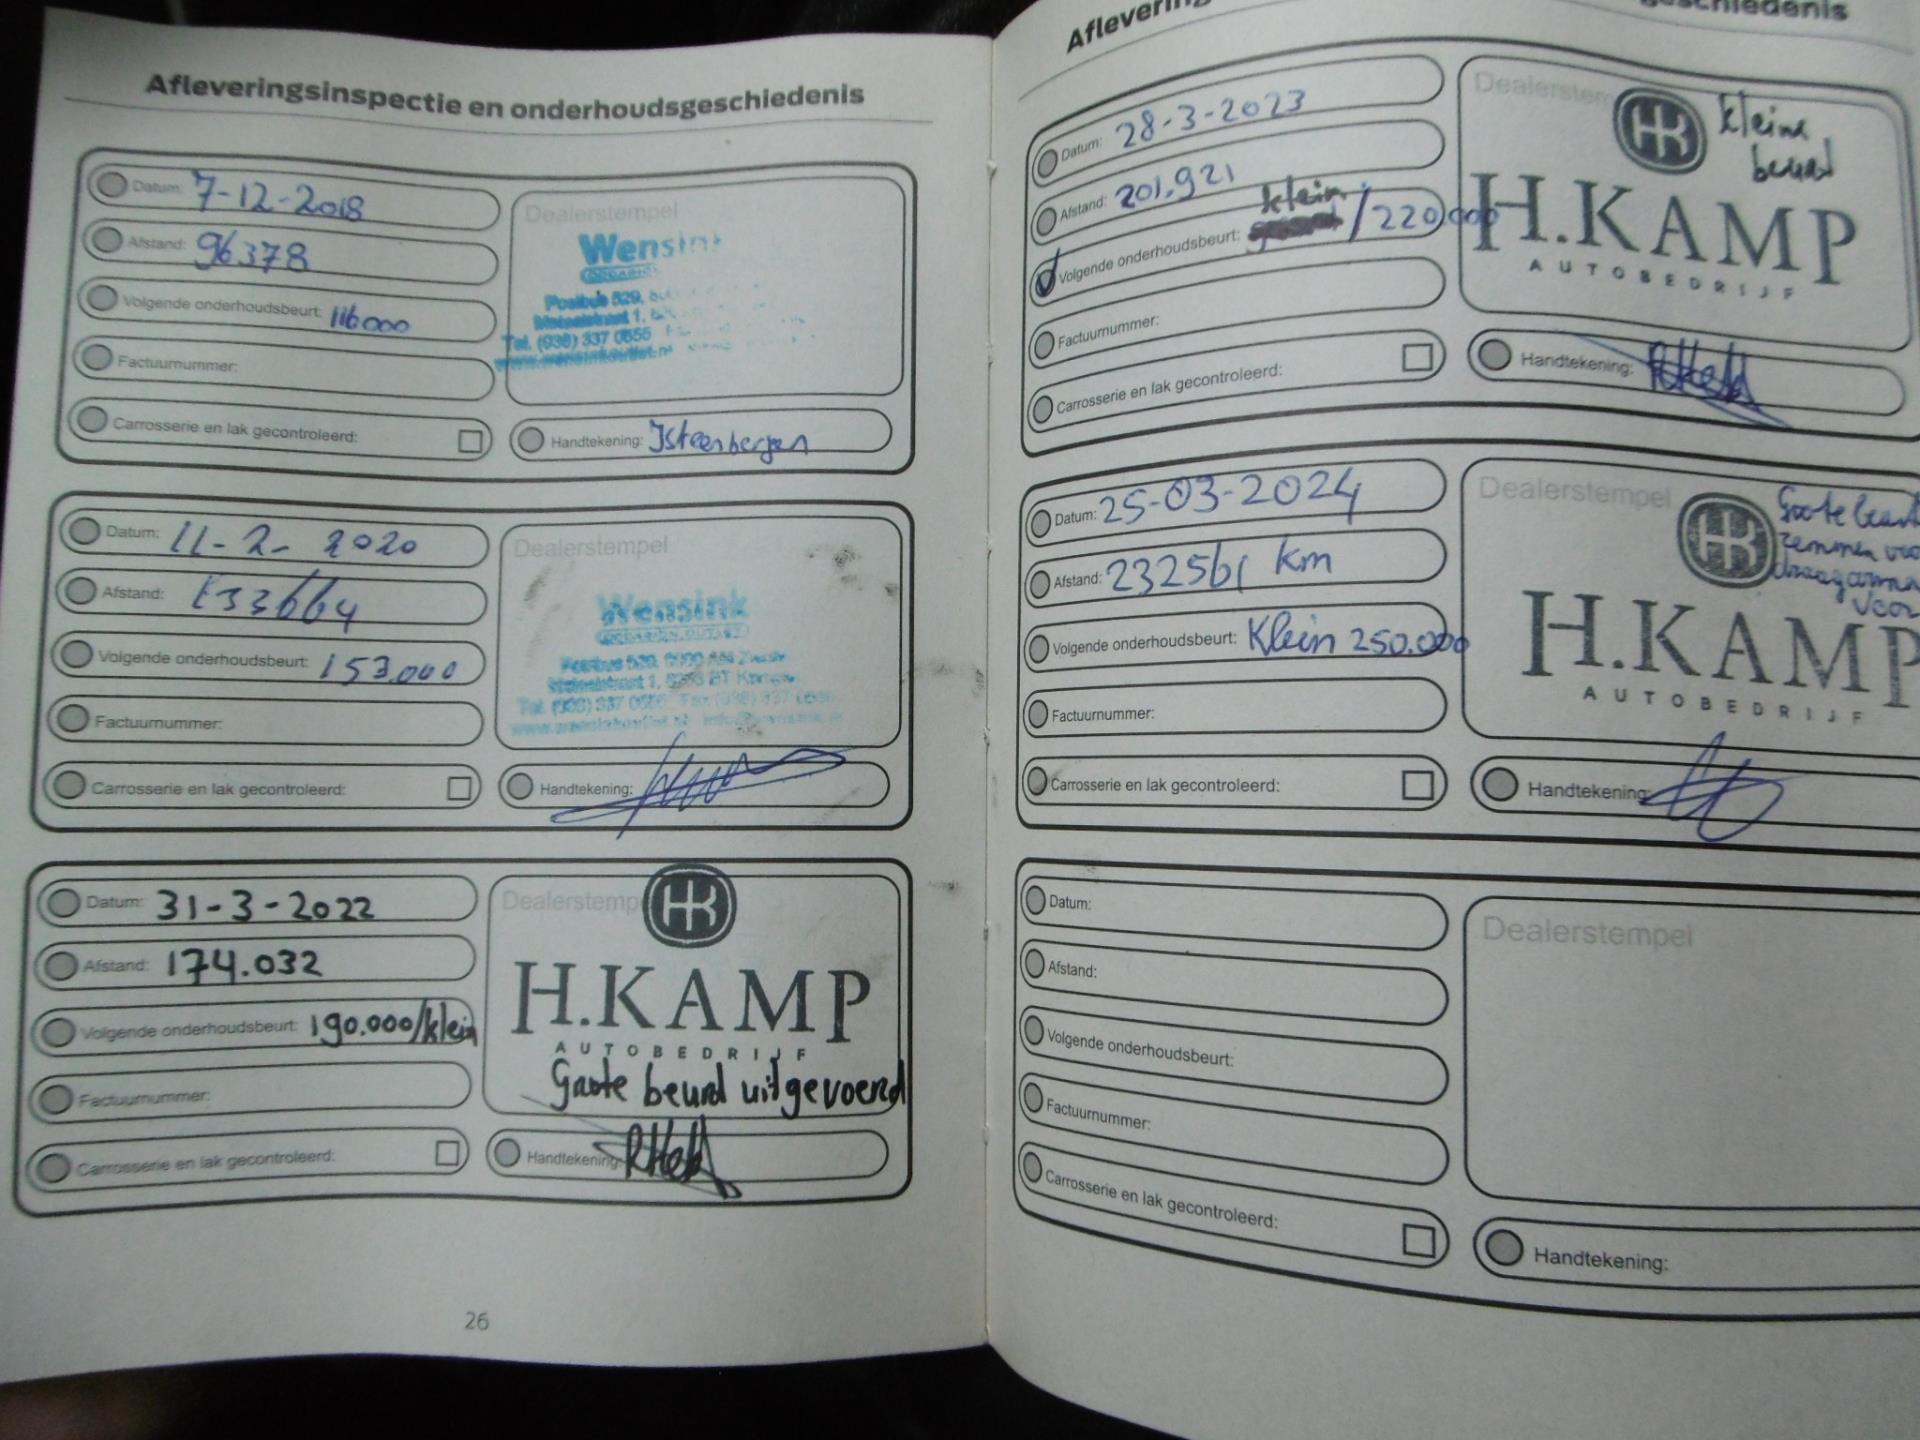 Afleveringsinspectie en onderhoudsgeschiedenis
Datum: 7-12-2018
Afstand: 96378
Volgende onderhoudsbeurt: 116000
Factuurnummer:
Carrosserie en lak gecontroleerd:
Dealerstempel
Wensink
Postbus 529,
1,
Tel. (038) 337 0655
Handtekening: JSteenbergen
Datum: 11-2-2020
Afstand: 133664
Volgende onderhoudsbeurt: 153.000
Factuurnummer:
Carrosserie en lak gecontroleerd:
Dealerstempel
Wensink
Postbus 529,
1,
Tel. (038) 337 0655
Handtekening:
Datum: 31-3-2022
Afstand: 174.032
Volgende onderhoudsbeurt: 190.000/klein
Factuurnummer:
Carrosserie en lak gecontroleerd:
Dealerstemp
H.KAMP
AUTOBEDRIJF
Grote beurd uitgevoerd
Handtekening:
26
Aflevering
geschiedenis
Datum: 28-3-2023
Afstand: 201.921
klein
Volgende onderhoudsbeurt: /220.000
Factuurnummer:
Carrosserie en lak gecontroleerd:
Dealerstem
kleine
beurd
H.KAMP
AUTOBEDRIJF
Handtekening:
Datum: 25-03-2024
Afstand: 232561 km
Volgende onderhoudsbeurt: Klein 250.000
Factuurnummer:
Carrosserie en lak gecontroleerd:
Dealerstempel
Grote beurt
remmen voo
draagarmen
voor
H.KAMP
AUTOBEDRIJF
Handtekening:
Datum:
Afstand:
Volgende onderhoudsbeurt:
Factuurnummer:
Carrosserie en lak gecontroleerd:
Dealerstempel
Handtekening: